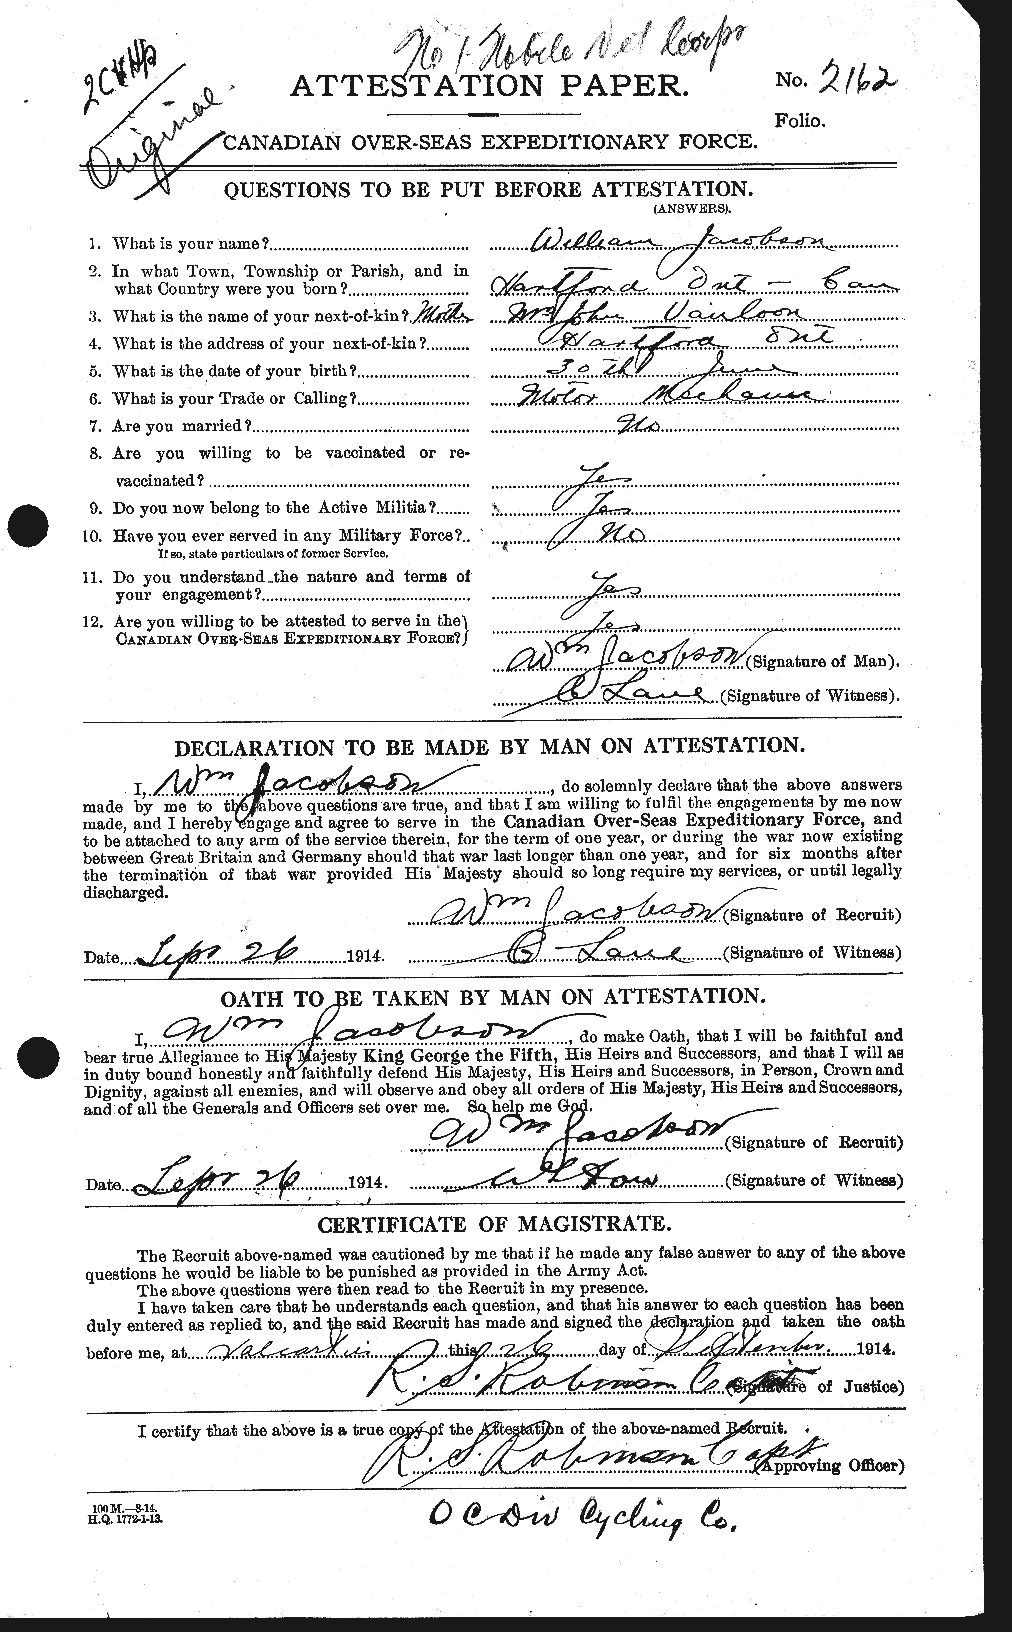 No 1 Mobile Vet Corps
2CVHp
Original
ATTESTATION PAPER.
No. 2162
Folio.
CANADIAN OVER-SEAS EXPEDITIONARY FORCE.
QUESTIONS TO BE PUT BEFORE ATTESTATION.
(ANSWERS).
1. What is your name? William Jacobson
2. In what Town, Township or Parish, and in
what Country were you born? Hartford Ont - Can
3. What is the name of your next-of-kin? Mother Mrs John
4. What is the address of your next-of-kin? Hartford Ont
5. What is the date of your birth? 30th June
6. What is your Trade or Calling? Motor Mechanic
7. Are you married? No
8. Are you willing to be vaccinated or re-
vaccinated? Yes
9. Do you now belong to the Active Militia? Yes
10. Have you ever served in any Military Force?.. No
If so, state particulars of former Service.
11. Do you understand the nature and terms of
your engagement? Yes
12. Are you willing to be attested to serve in the
CANADIAN OVER-SEAS EXPEDITIONARY FORCE? Yes
Wm Jacobson (Signature of Man).
C Lane (Signature of Witness).
DECLARATION TO BE MADE BY MAN ON ATTESTATION.
I, Wm Jacobson, do solemnly declare that the above answers
made by me to the above questions are true, and that I am willing to fulfil the engagements by me now
made, and I hereby engage and agree to serve in the Canadian Over-Seas Expeditionary Force, and
to be attached to any arm of the service therein, for the term of one year, or during the war now existing
between Great Britain and Germany should that war last longer than one year, and for six months after
the termination of that war provided His Majesty should so long require my services, or until legally
discharged.
Wm Jacobson (Signature of Recruit)
Date Sept 26 1914. C Lane (Signature of Witness)
OATH TO BE TAKEN BY MAN ON ATTESTATION.
I, Wm Jacobson, do make Oath, that I will be faithful and
bear true Allegiance to His Majesty King George the Fifth, His Heirs and Successors, and that I will as
in duty bound honestly and faithfully defend His Majesty, His Heirs and Successors, in Person, Crown and
Dignity, against all enemies, and will observe and obey all orders of His Majesty, His Heirs and Successors,
and of all the Generals and Officers set over me. So help me God.
Wm Jacobson (Signature of Recruit)
Date Sept 26 1914. (Signature of Witness)
CERTIFICATE OF MAGISTRATE.
The Recruit above-named was cautioned by me that if he made any false answer to any of the above
questions he would be liable to be punished as provided in the Army Act.
The above questions were then read to the Recruit in my presence.
I have taken care that he understands each question, and that his answer to each question has been
duly entered as replied to, and the said Recruit has made and signed the declaration and taken the oath
before me, at Valcartier this 26 day of September. 1914.
R. S. Robinson Capt (Signature of Justice)
I certify that the above is a true copy of the Attestation of the above-named Recruit.
R. S. Robinson Capt (Approving Officer)
100 M.—8-14.
H.Q. 1772-1-13.
O C Div Cycling Co.